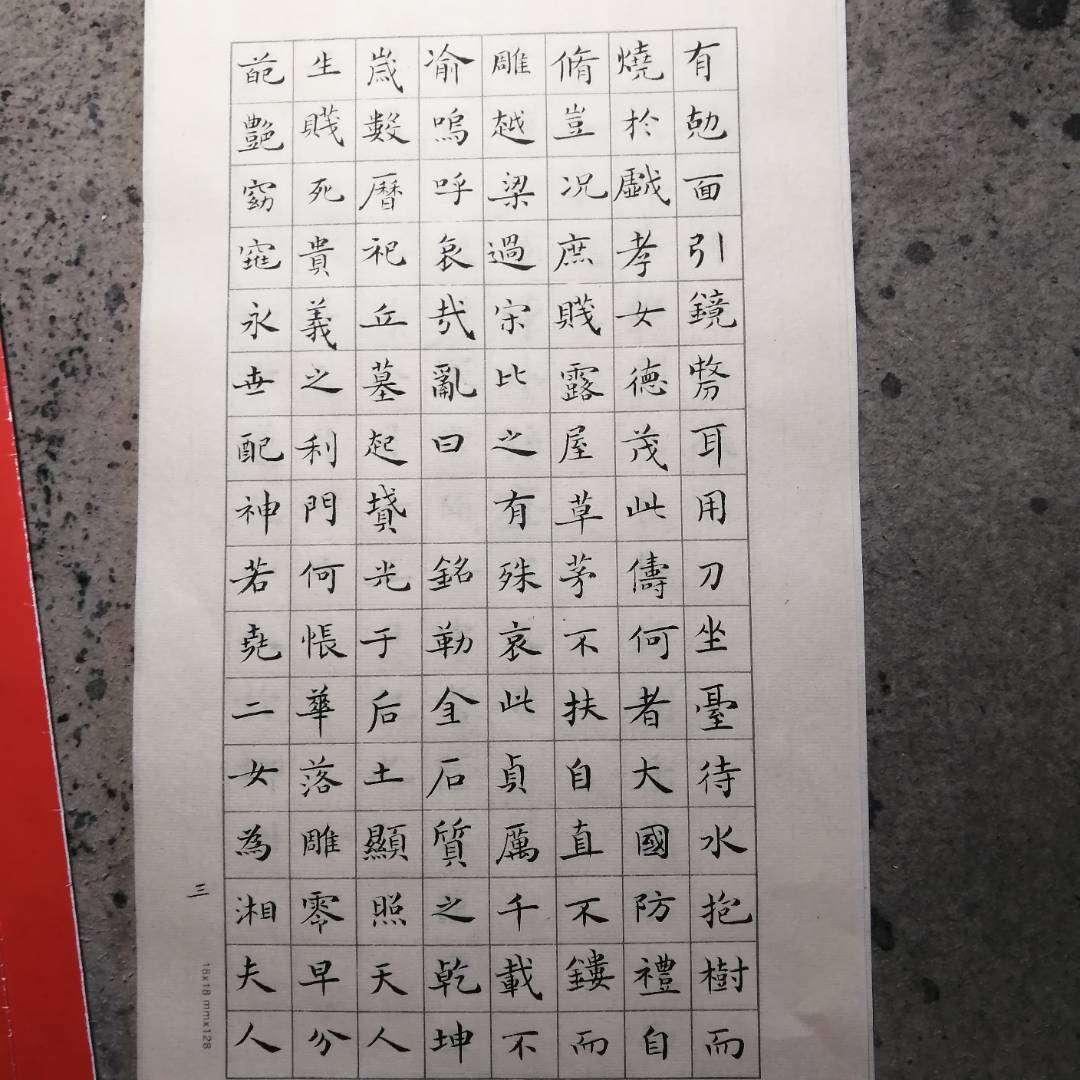 有勊面引鏡剺耳用刀坐臺待水抱樹而
燒於戯孝女德茂此儔何者大國防禮自
脩豈况庶賤露屋草茅不扶自直不鏤而
雕越梁過宋比之有殊哀此貞厲千載不
渝嗚呼哀哉亂曰 銘勒金石質之乾坤
歲數曆祀丘墓起墳光于后土顯照天人
生賤死貴義之利門何悵華落雕零早分
葩豔窈窕永世配神若堯二女為湘夫人
三
18x18 mmx128